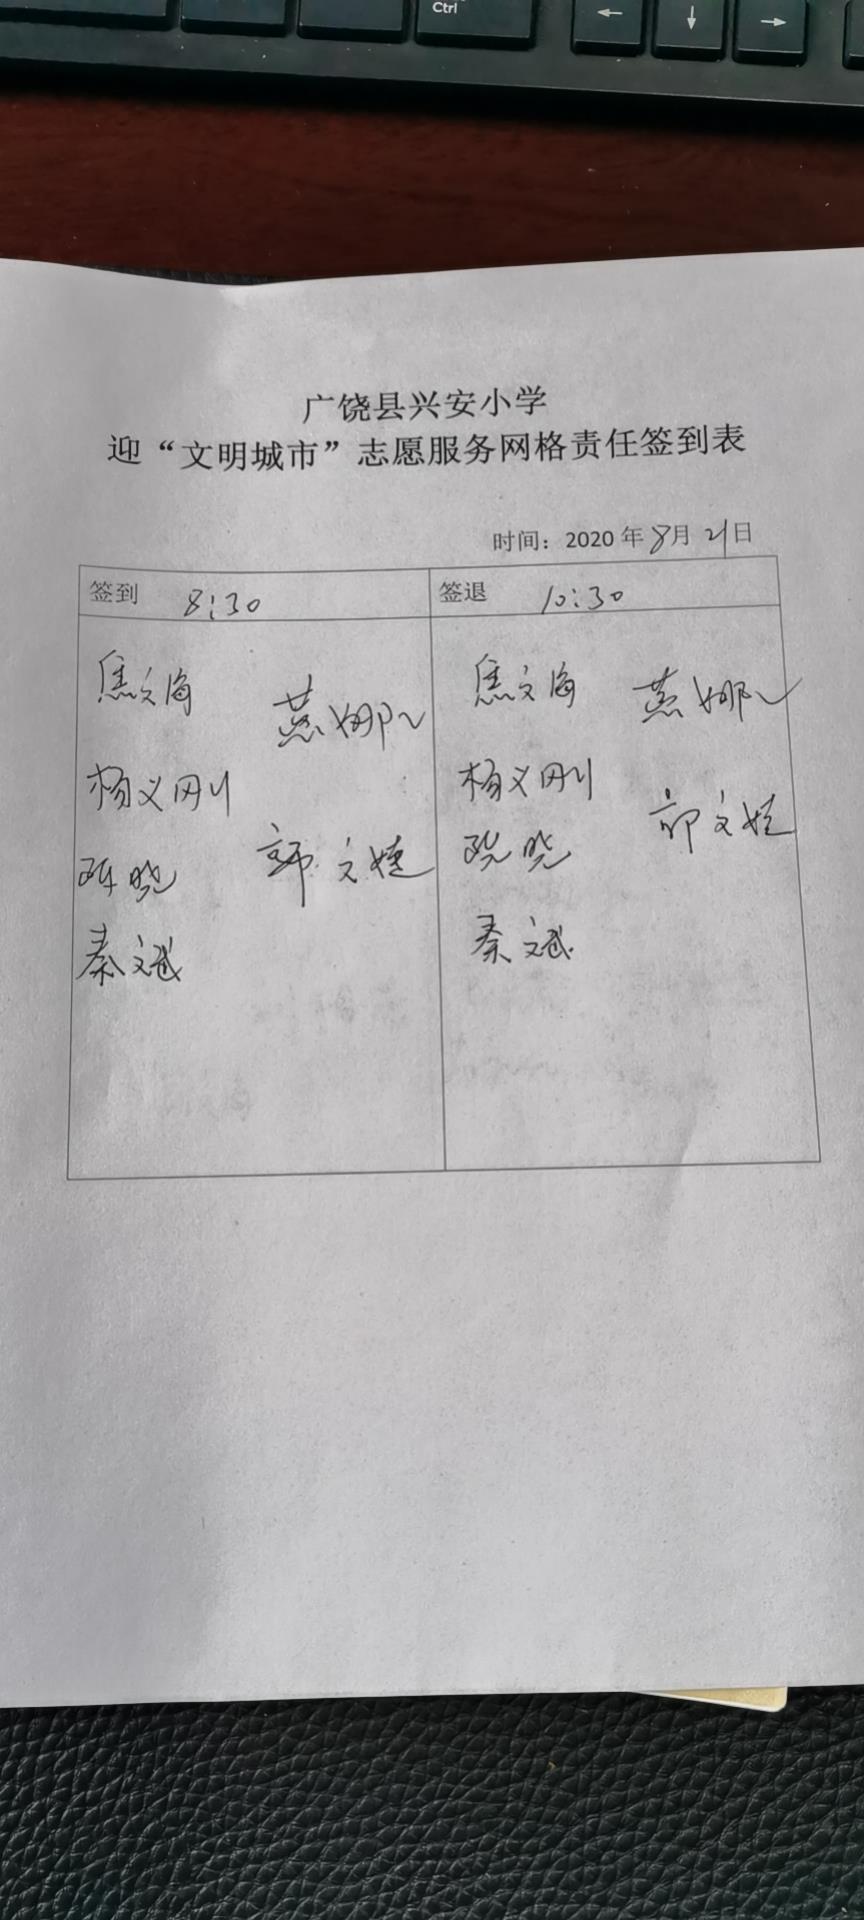 Ctrl
←
↓
→
广饶县兴安小学
迎“文明城市”志愿服务网格责任签到表
时间：2020年8月21日
签到 8:30
签退 10:30
焦文海 燕娜
杨义刚
陈晓 郭文婕
秦文斌
焦文海 燕娜
杨义刚 郭文婕
陈晓
秦文斌